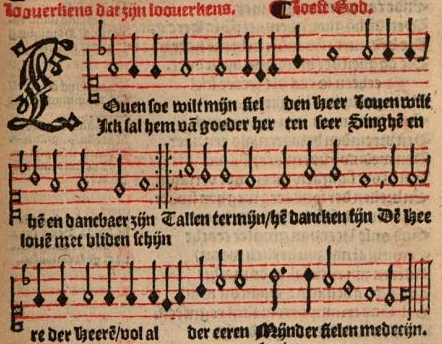 loouerkens dat zijn loouerkens. ¶ Looft God.
LOuen soe wilt mijn siel den Heer Louen wilt
Ick sal hem vā goeder her ten seer Singhē en
hē en dancbaer zijn Tallen termijn/hē dancken fijn Dē Hee
louē met bliden schijn
re der Heerē/vol al der eeren Mijnder sielen medecijn.